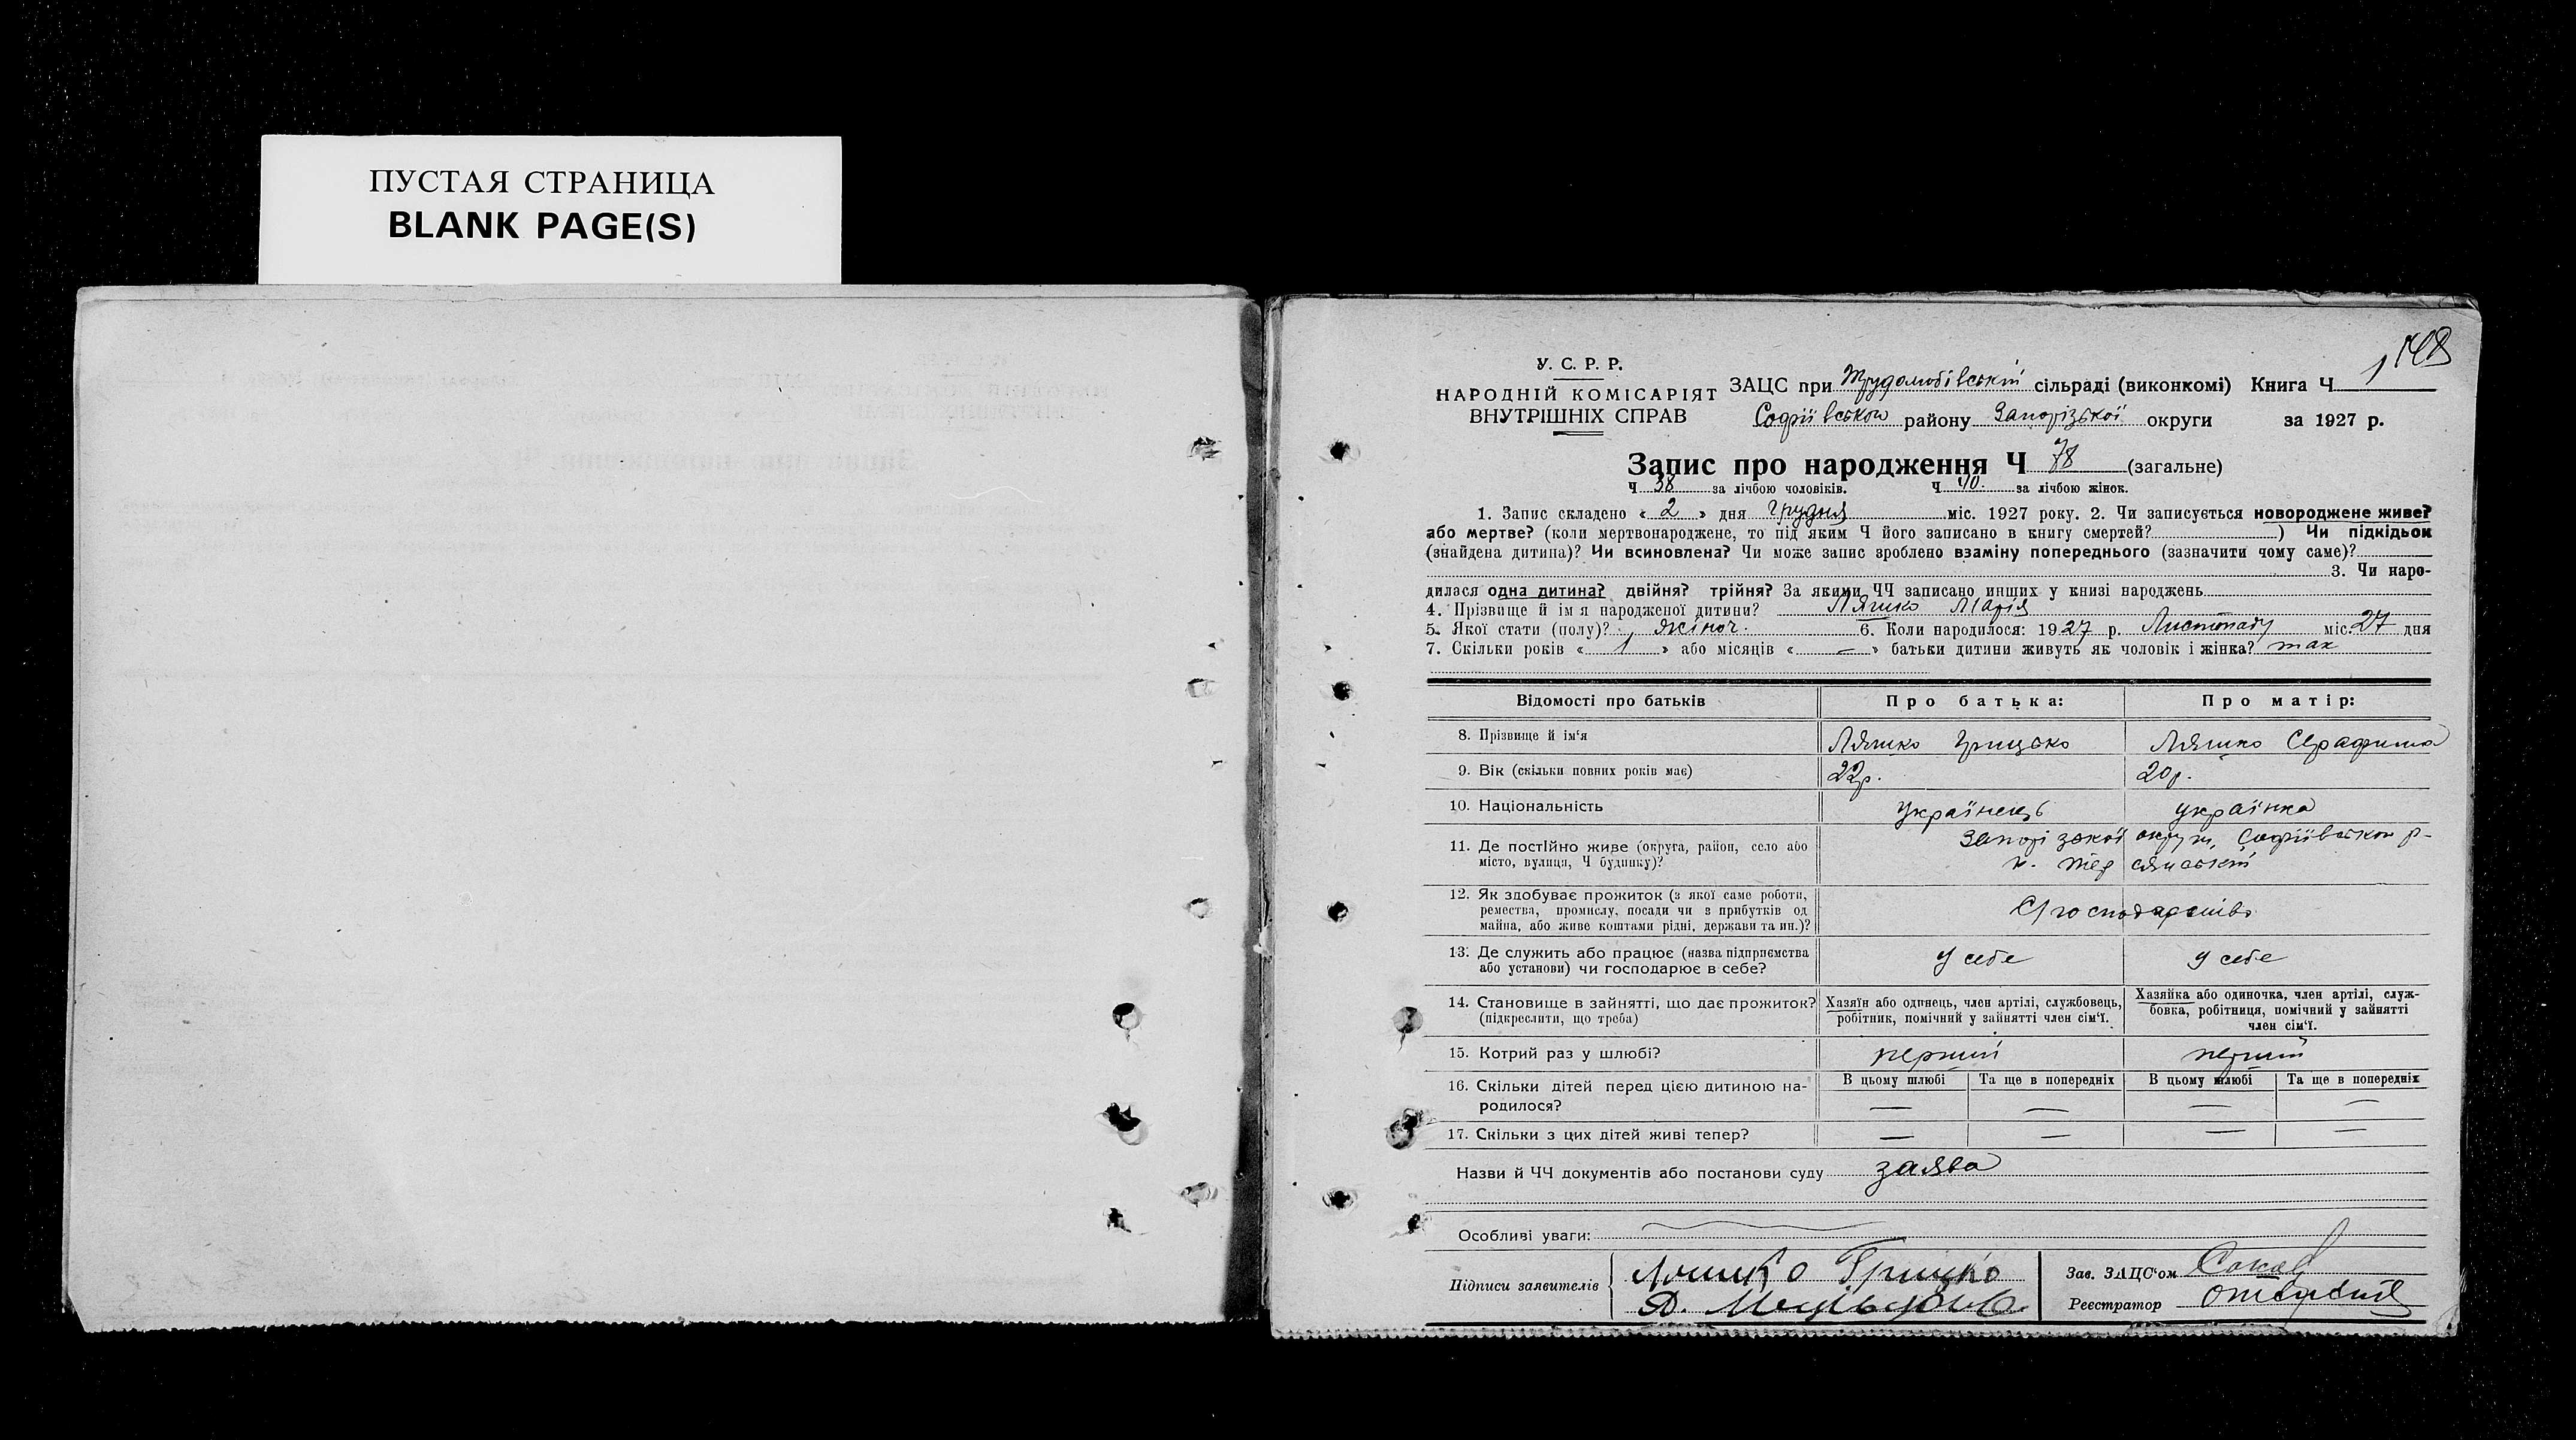 ПУСТАЯ СТРАНИЦА
BLANK PAGE(S)
148
У. С. Р. Р.
НАРОДНІЙ КОМІСАРІЯТ
ВНУТРІШНІХ СПРАВ
ЗАЦС при Трудолюбівській сільраді (виконкомі) Книга Ч 1
Софіївського району Запорізької округи за 1927 р.
Запис про народження Ч 78 (загальне)
Ч 38 за лічбою чоловіків. Ч 40. за лічбою жінок.
1. Запис складено « 2 » дня грудня міс. 1927 року. 2. Чи записується новороджене живе?
або мертве? (коли мертвонароджене, то під яким Ч його записано в книгу смертей? ) Чи підкідьок
(знайдена дитина)? Чи всиновлена? Чи може запис зроблено взаміну попереднього (зазначити чому саме)?
3. Чи наро-
дилася одна дитина? двійня? трійня? За якими ЧЧ записано инших у книзі народжень
4. Прізвище й ім я народженої дитини? Ляшко Марія
5. Якої стати (полу)? жіноч. 6. Коли народилося: 1927 р. Листопаду міс. 27 дня
7. Скільки років « 1 » або місяців « — » батьки дитини живуть як чоловік і жінка? так
Відомості про батьків Про батька: Про матір:
8. Прізвище й ім'я Ляшко Грицько Ляшко Серафима
9. Вік (скільки повних років має) 22р. 20р.
10. Національність українець українка
11. Де постійно живе (округа, район, село або Запорізької округи, Софіївського р-
місто, вулиця, Ч будинку)?
12. Як здобуває прожиток (з якої саме роботи,
ремества, промислу, посади чи з прибутків од
майна, або живе коштами рідні, держави та ин.)?
13. Де служить або працює (назва підприємства у себе у себе
або установи) чи господарює в себе?
14. Становище в зайнятті, що дає прожиток? Хазяїн або одинець, член артілі, службовець, Хазяйка або одиночка, член артілі, служ-
(підкреслити, що треба) робітник, помічний у зайнятті член сім'ї. бовка, робітниця, помічний у зайнятті
член сім'ї.
15. Котрий раз у шлюбі? перший перший
16. Скільки дітей перед цією дитиною на- В цьому шлюбі Та ще в попередніх В цьому шлюбі Та ще в попередніх
родилося? — — — —
17. Скільки з цих дітей живі тепер? — — — —
Назви й ЧЧ документів або постанови суду заява
Особливі уваги:
Підписи заявителів Ляшко Грицко
Зав. ЗАЦС'ом
Реєстратор